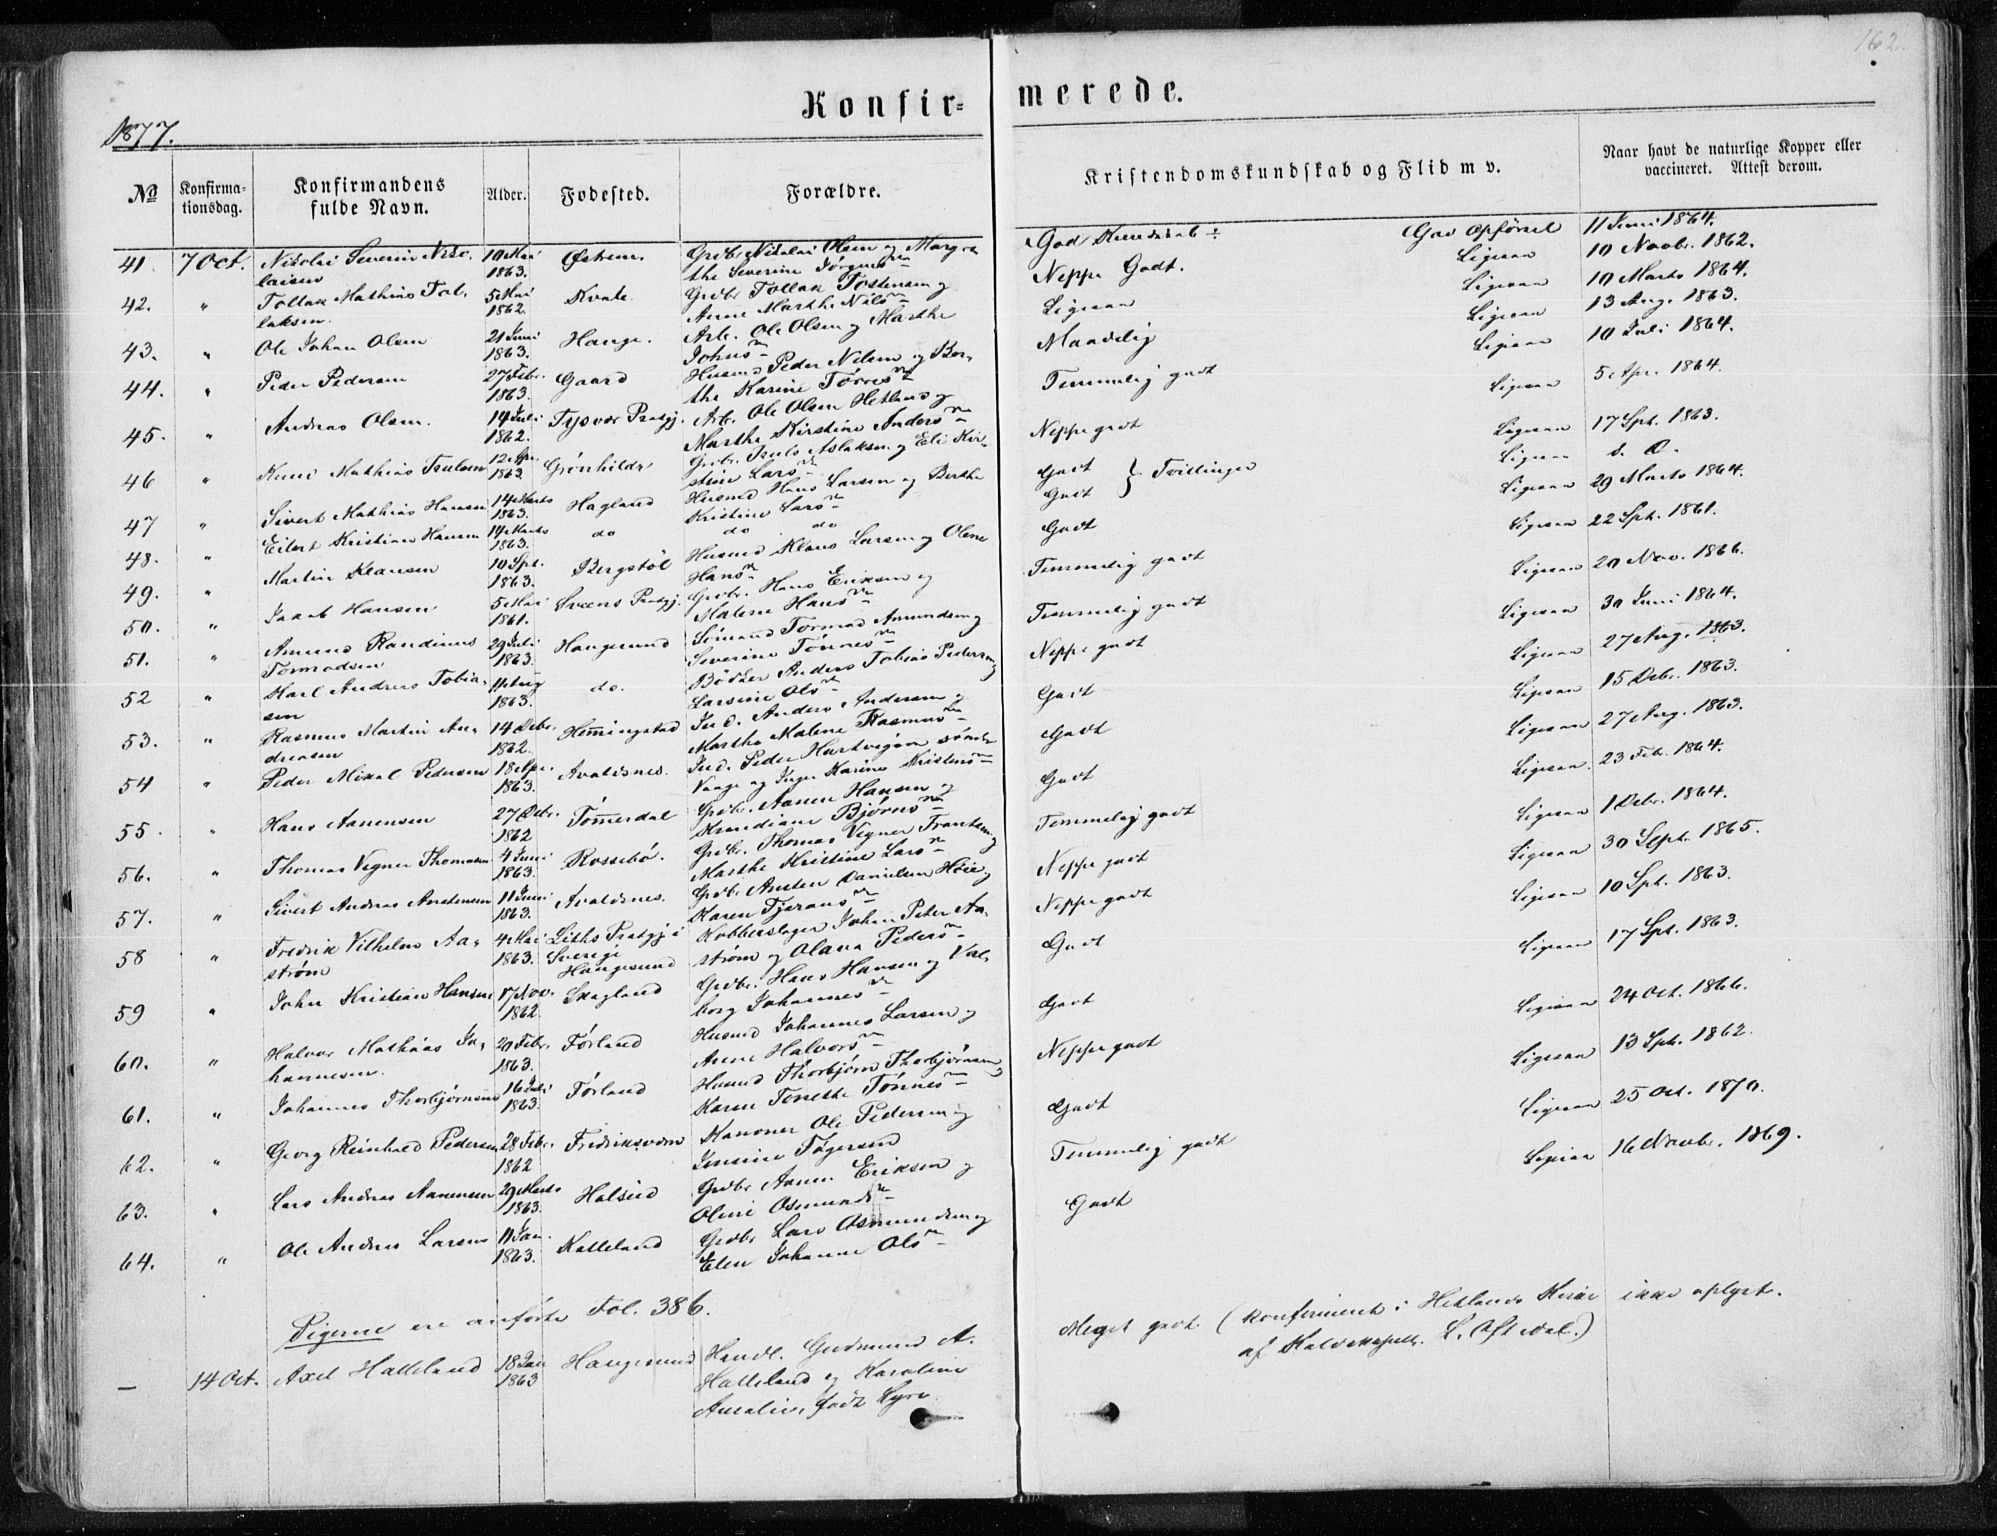 162.
Konfir= merede.
1877.
No Konfirma-tionsdag. Konfirmandens fulde Navn. Alder. Fødested. Forældre. Kristendomskundskab og Flid m v. Naar havt de naturlige Kopper eller vaccineret. Attest derom.
41. 7 Oct. Nikolai Severin Niko- 10 Mai Østrem. Grdbr. Nikolai Olsen og Margre God Kundskab ÷ God Opførsel 11 Juni 1864.
laisen 1863. the Severine Jørgensdn
42. " Tollak Mathias Tol- 5 Mai Kvale. Grdbr. Tollak Tostensen og Neppe Godt. Ligesaa 10 Novbr. 1862.
laksen. 1862. Anne Marthe Nilsdn
43. " Ole Johan Olsen 21 Juni Hauge. Arb. Ole Olsen og Marthe Ligesaa Ligesaa 10 Marts 1864.
1863. Johnsdn
44. " Peder Pedersen 27 Febr. Gaard Husmd Peder Nilsen og Ber- Maadelig Ligesaa 13 Aug. 1863.
1863. the Karine Torresdn
45. " Andreas Olsen. 14 Juli Tysvær Prstgj. Arb. Ole Olsen Hetland og Temmelig godt Ligesaa 10 Juli 1864.
1862. Marthe Kirstine Andersdn
46 " Knud Mathias Trulsen 12 Apr. Grönhildr Grdbr. Truls Aslaksen og Eli Kir- Neppe godt Ligesaa 5 Apr. 1864.
1863. stine Larsdn
47 " Sivert Mathias Hansen 14 Marts Hagland Husmd Hans Larsen og Berthe Godt } Tvillinger Ligesaa 17 Spt. 1863.
1863. Kristine Larsdn
48. " Eilert Kristian Hansen 14 Marts do do do Godt Ligesaa d. O.
1863.
49. " Martin Klausen 10 Spt. Bergstöl Husmd Klaus Larsen og Olene Godt Ligesaa 29 Marts 1864.
1863. Hansdn
50. " Jakob Hansen 5 Mai Sveens Prstgj. Grdbr. Hans Eriksen og Temmelig godt Ligesaa 22 Spt. 1861.
1861. Malene Hansdn
51. " Amund Randinus 29 Juli Haugesund Sømand Tormod Amundsen og Temmelig godt Ligesaa 20 Nov. 1866.
Tormodsen 1863. Severine Tønnesdn
52 " Karl Andreas Tobia- 11 Aug do. Bødker Anders Tobias Pedersen og Neppe godt Ligesaa 30 Juni 1864.
sen 1863. Larsine Olsdn
53. " Rasmus Martin An- 14 Debr. Hemingstad Ind. Anders Andersen og Godt Ligesaa 27 Aug. 1863.
dreasen 1862. Marthe Malene Rasmusdn
54 " Peder Mikal Pedersen 18 Apr. Avaldsnes. Ind. Peder Hartvigsen søndre Godt Ligesaa 15 Debr. 1863.
1863. Vaage og Inger Karine Kristensdn
55. " Hans Aanensen 27 Debr. Tömerdal Grdbr. Aanen Hansen og Godt Ligesaa 27 Aug. 1863.
1862 Bjørnsdn
56. " Thomas Vegner Thomasen 4 Juni Rossebö. Grdbr. Thomas Vegner Frantsen og Temmelig godt Ligesaa 23 Feb. 1864.
1863. Marthe Kristine Larsdn
57. " Sivert Andreas Austensen 11 Juni Avaldsnes. Grdbr. Austen Danielsen Høie og Neppe godt Ligesaa 1 Debr. 1864.
1863. Karen Tjeransdn
58 " Fredrik Vilhelm Aa- 4 Mai Liths Prstgj i Kobberslager Johan Peter Aa- Neppe godt Ligesaa 30 Sept. 1865.
strøm 1863. Sverige strøm og Olava Pedersdn
Haugesund
59 " John Kristian Hansen 17 Nov. Skagland Grdbr. Hans Hansen og Val- Godt Ligesaa 10 Spt. 1863.
1862 borg Johannesdn
60. " Halvor Mathias Jo- 20 Febr. Førland Husmd Johannes Larsen og Godt Ligesaa 17 Spt. 1863.
hannesen. 1863. Anne Halvorsdn
61. " Johannes Thorbjørnsen 16 Juli Førland Husmd Thorbjørn Thorbjørnsen og Neppe godt Ligesaa 24 Oct. 1866.
1863. Karen Tonette Tønnesdn
62. " Georg Reinhold Pedersen 28 Febr. Fredriksværn Kanoner Ole Pedersen og Godt Ligesaa 13 Spt. 1862
1862 Jensine
63. " Lars Andreas Aanensen 29 Marts Grdbr Aanen Eriksen og Temmelig godt Ligesaa 25 Oct. 1870.
1863. Oline Osmundsdn
64. " Ole Andreas Larsen 11 Jan. Kalleland Grdbr Lars Osmundsen og Godt Ligesaa 16 Novbr. 1869.
1863. Elen Johanne Olsdn
Pigerne ere anførte Fol. 386.
— 14 Oct. Axel Halleland 18 Jan Haugesund Handl. Gudmund A. Meget godt. (konfirmeret i Hetlands Kirke ikke oplyst.
1863 Halleland og Karoline af L. Oftedal.)
Amalie, født Lyre.